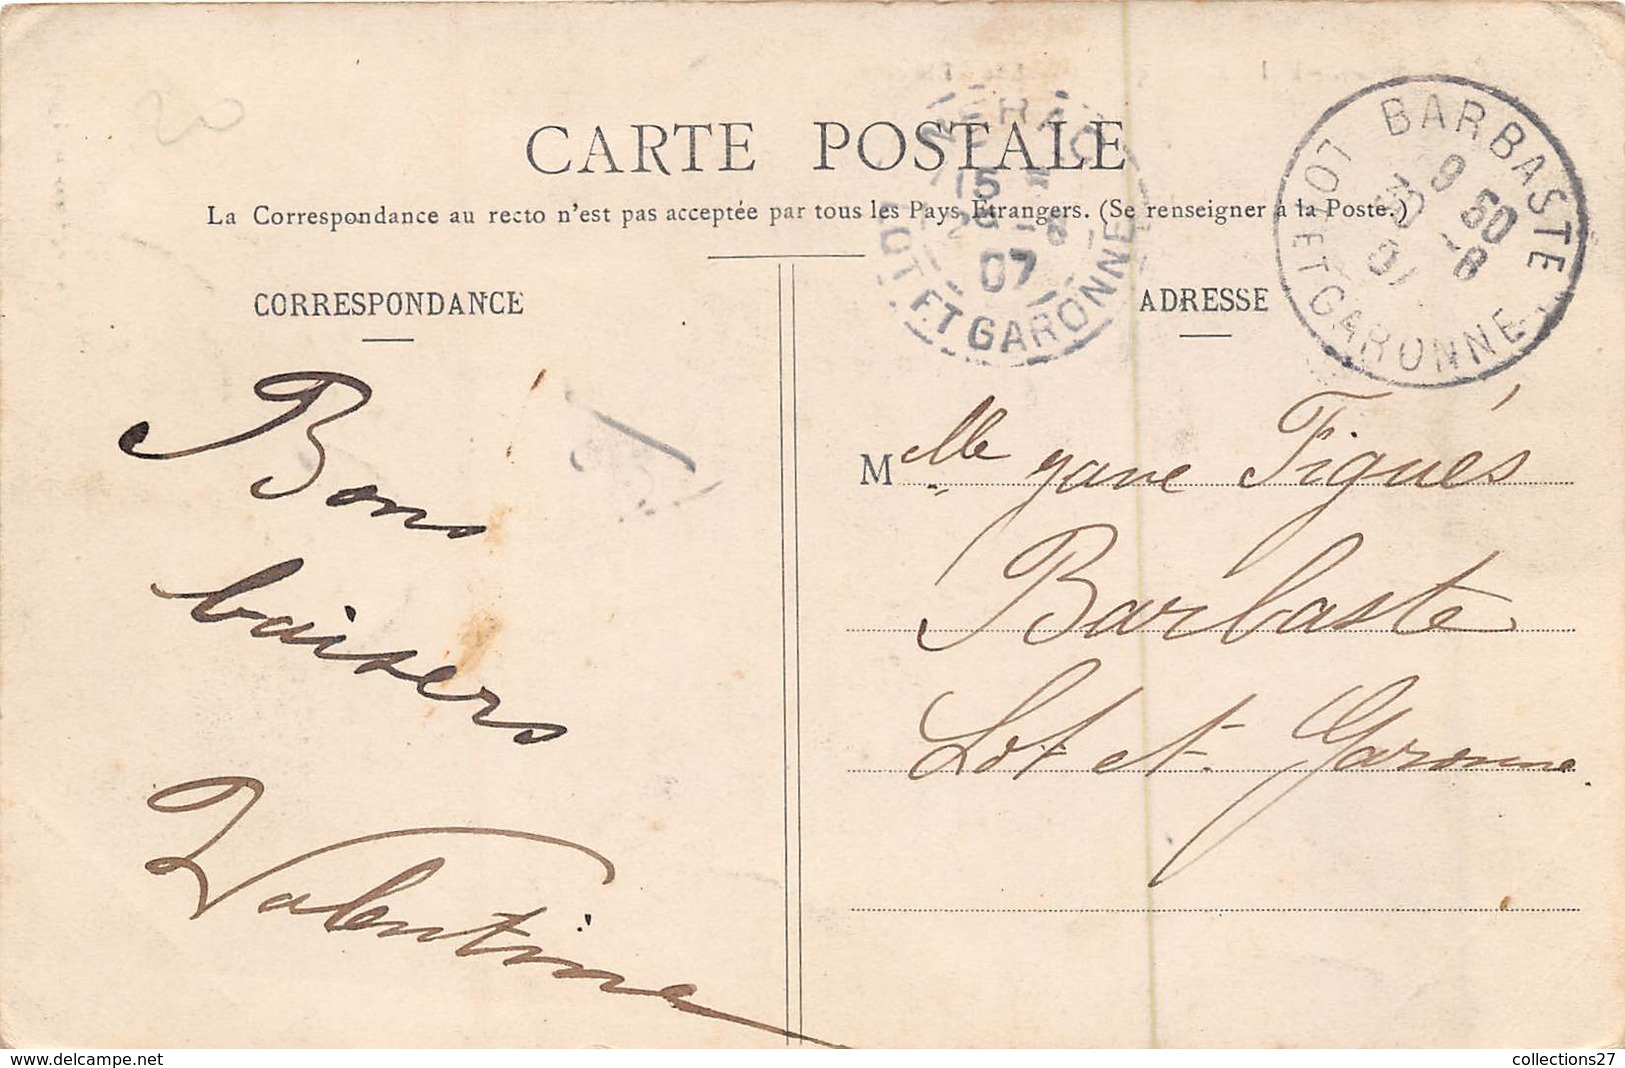 20
CARTE POSTALE
La Correspondance au recto n'est pas acceptée par tous les Pays Étrangers. (Se renseigner à la Poste.)
NERAC
15
07
LOT ET GARONNE
BARBASTE
9 50
30 -8
07
LOT ET GARONNE
CORRESPONDANCE
Bons
baisers
Valentine
ADRESSE
Mlle Jane Figués
Barbaste
Lot et Garonne.
www.delcampe.net
collections27